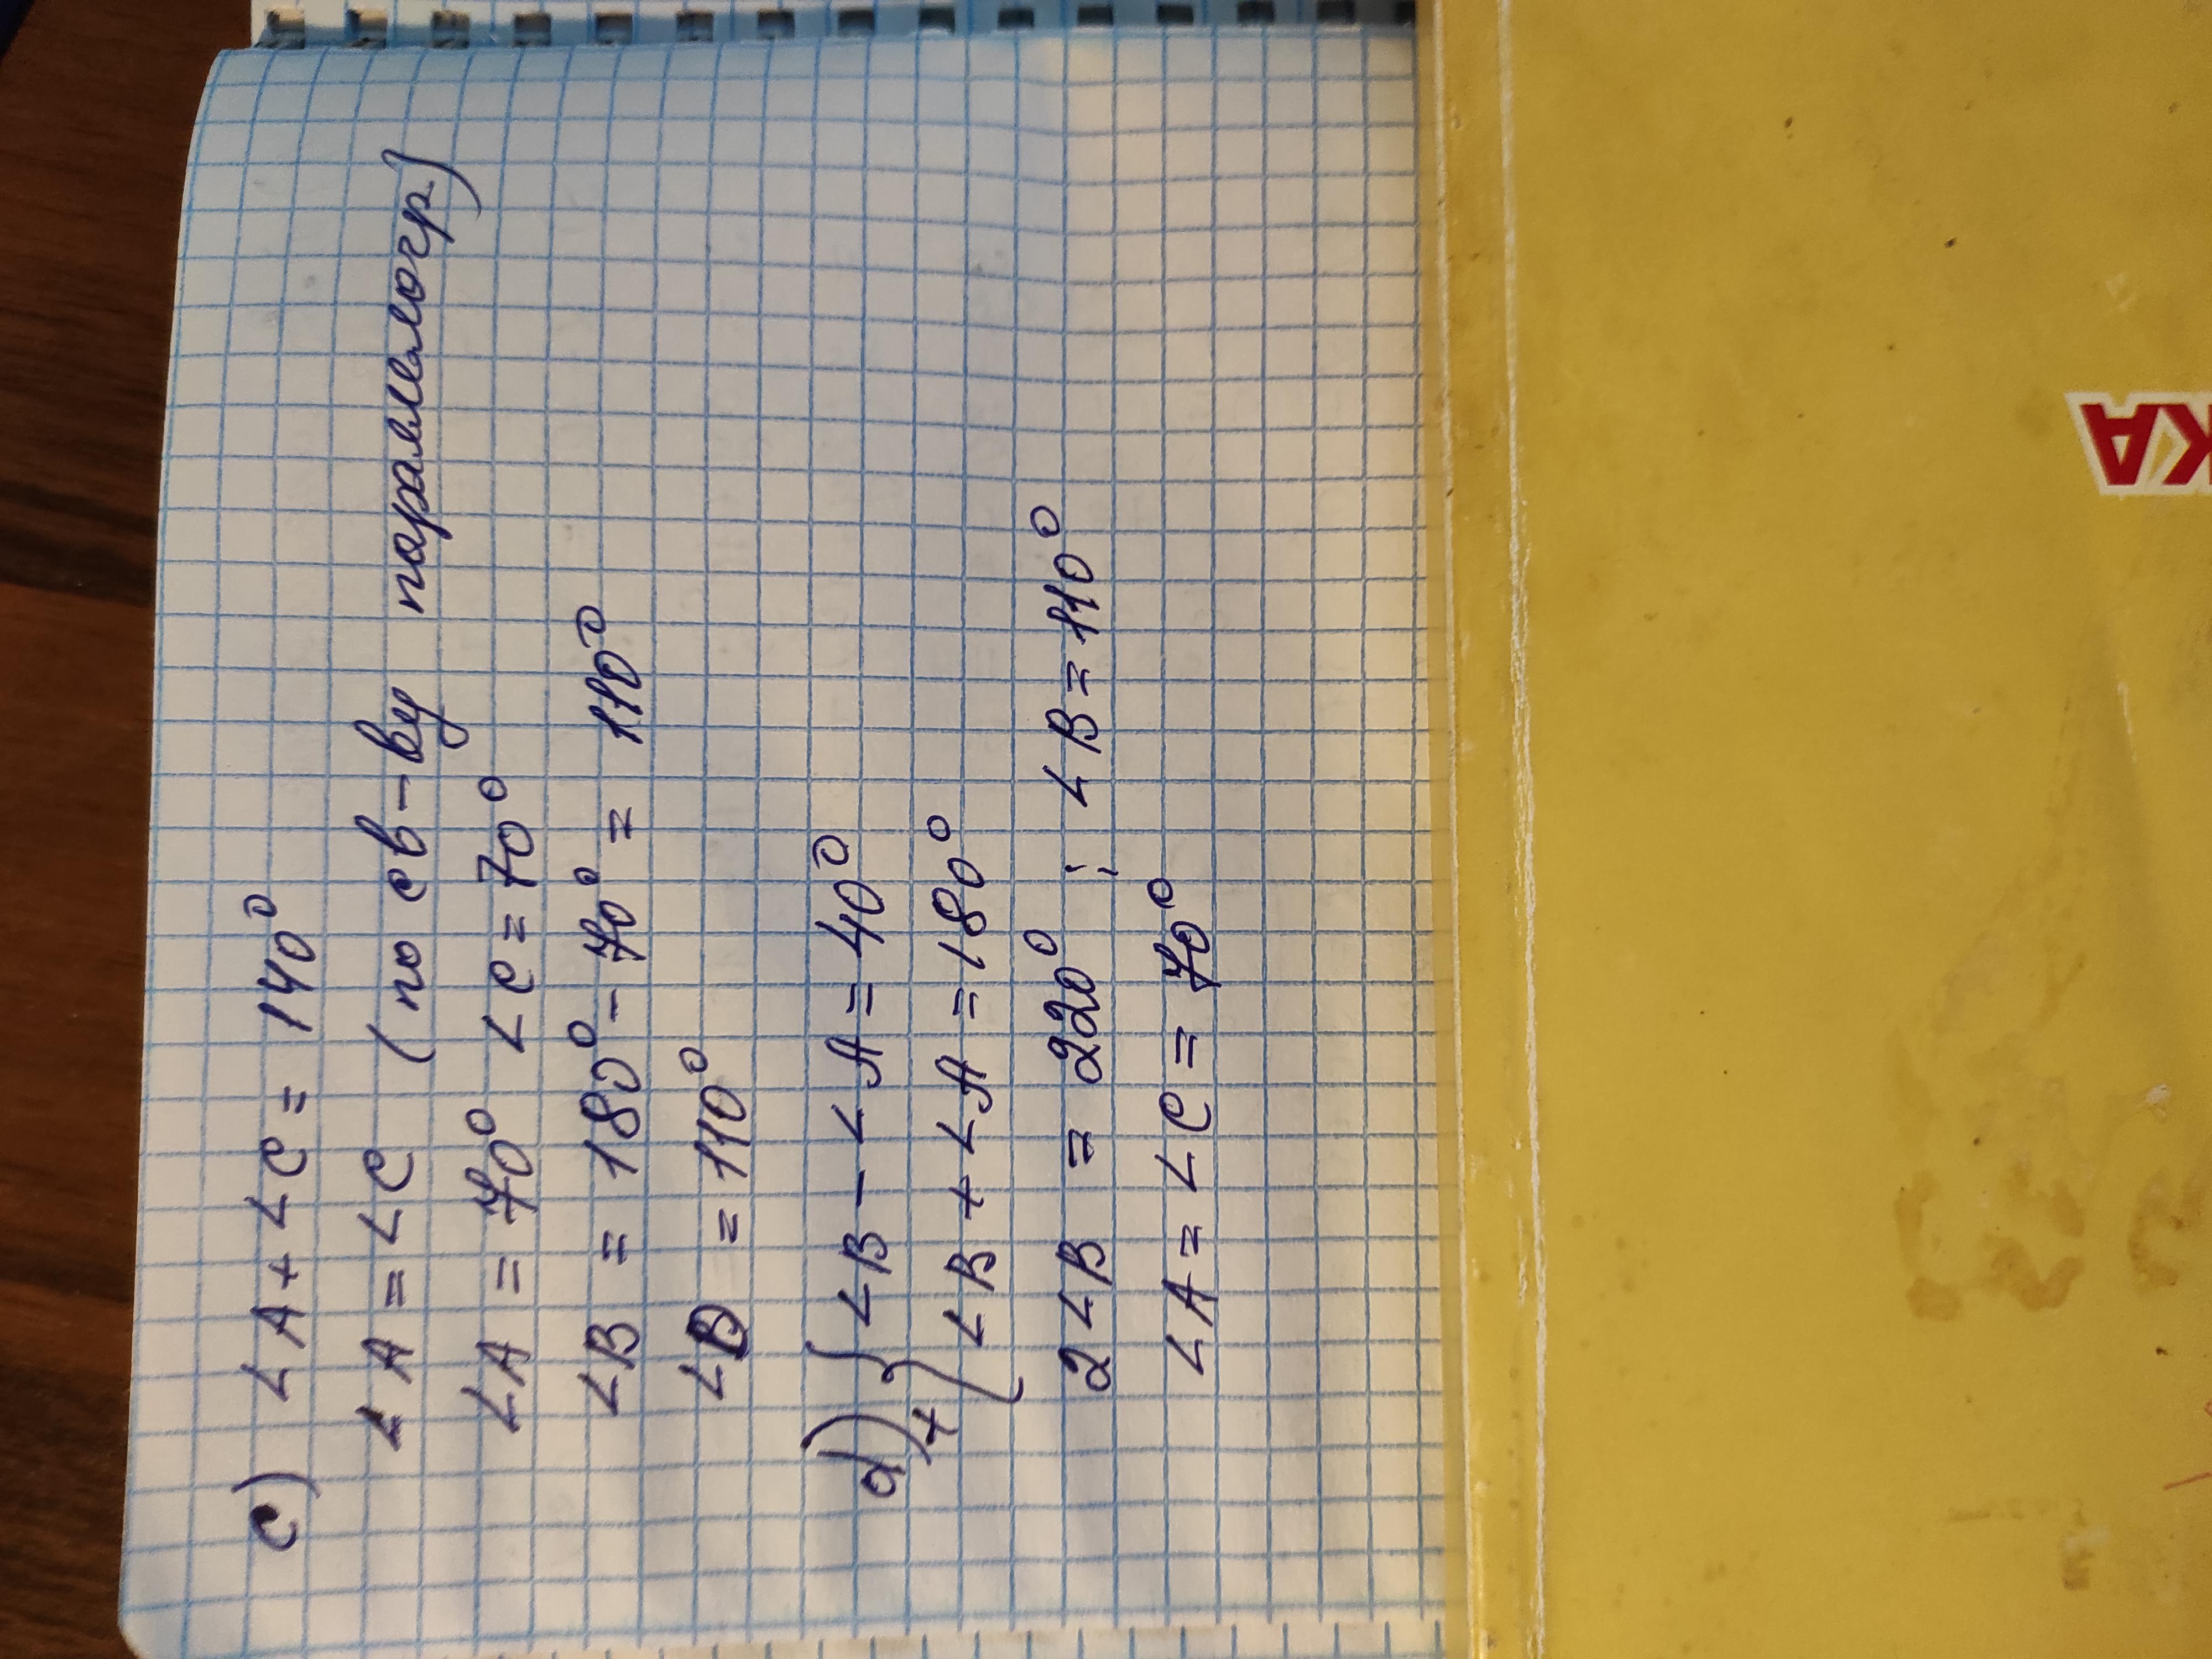 c) ∠A + ∠C = 140°
∠A = ∠C (по св-ву параллелогр)
∠A = 70° ∠C = 70°
∠B = 180° - 70° = 110°
∠D = 110°
d) + { ∠B - ∠A = 40°
∠B + ∠A = 180°
2∠B = 220° ; ∠B = 110°
∠A = ∠C = 70°
КА